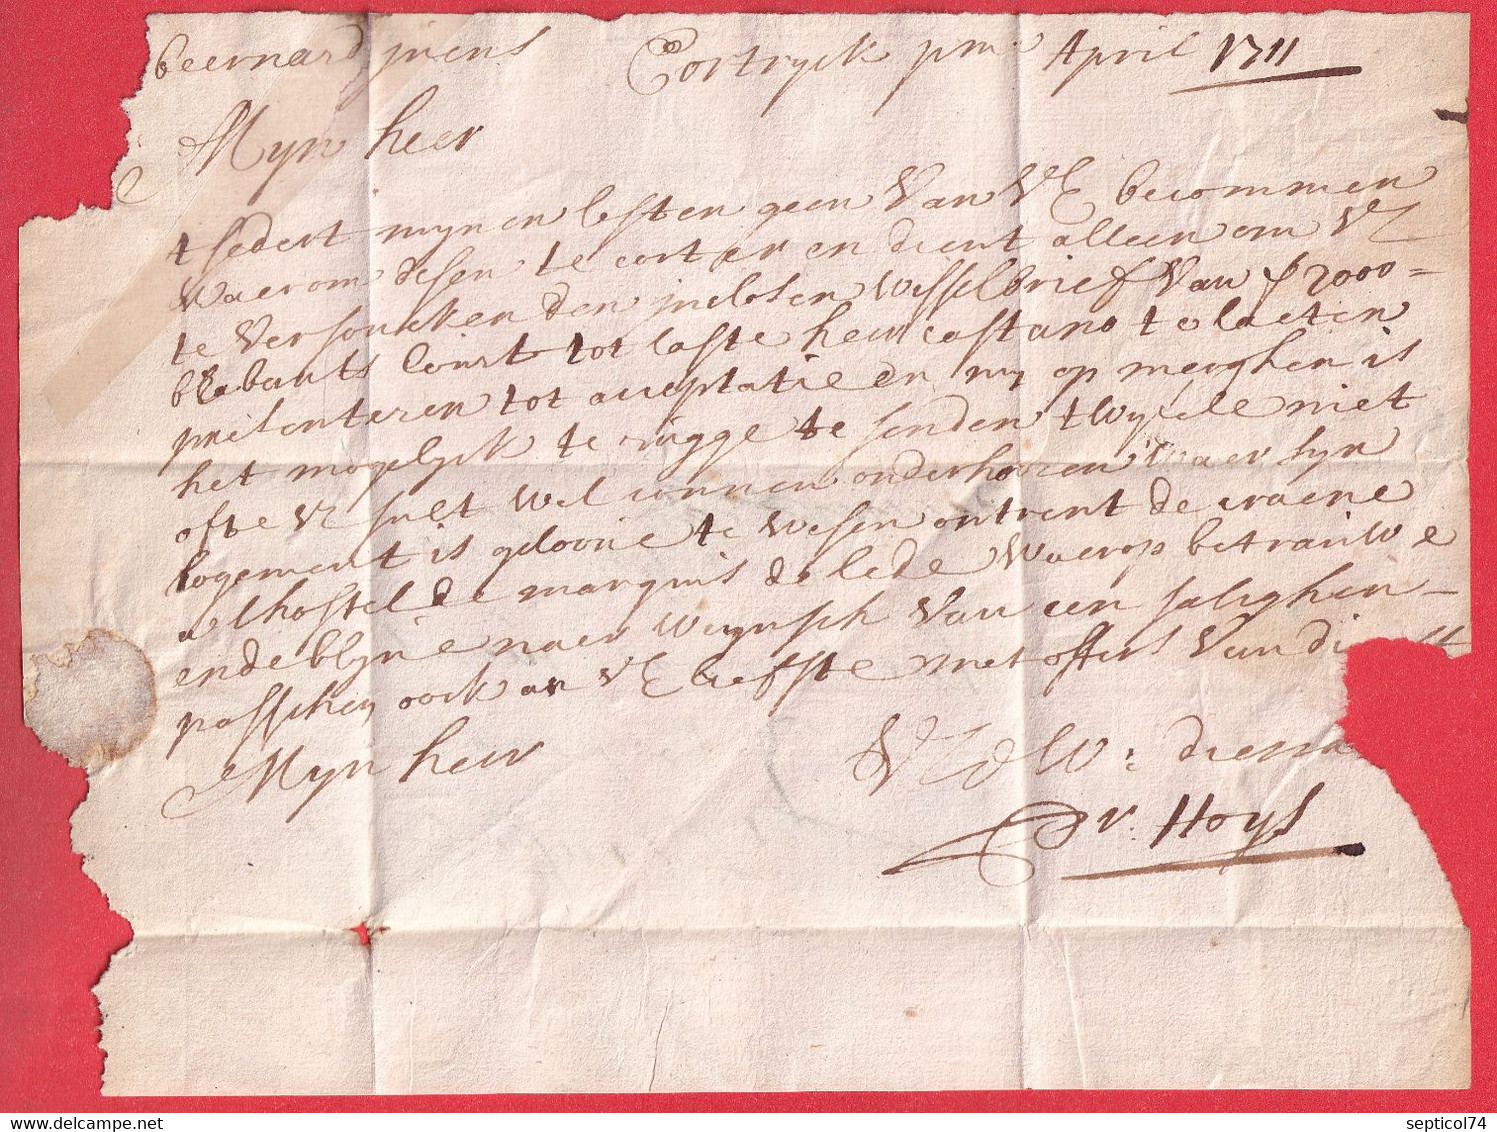 beernard Cortryck pm. April 1711
Myn heer
t sedert mynen lesten geen van VE becommen
Waerom desen te corter en dient alleen om VE
te versoucken den inclosen Wisselbrief van f 2000=
brabants Court tot laste heer castano te laeten
presenteren tot acceptatie en my op merghen is
het mogelyck te rugge te senden twyfele niet
ofte VE sult wel connen onderhooren waer syn
logement is geloove te wesen ontrent de craene
al hostel de marquis de lede Waerop betrauwe
ende blyve naer Wunsch van een salighen
passchen oock an VE liefste met offers van
Myn heer
VE d W: diena
v. Hoys
septicol74